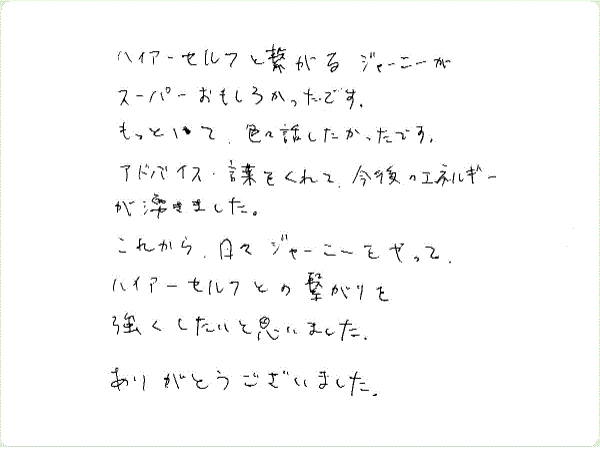 ハイアーセルフと繋がる ジャーニーが
スーパーおもしろかったです。
もっといて、色々話したかったです。
アドバイス・言葉をくれて、今後のエネルギー
が湧きました。
これから、日々ジャーニーをやって、
ハイアーセルフとの繋がりを
強くしたいと思いました。
ありがとうございました。